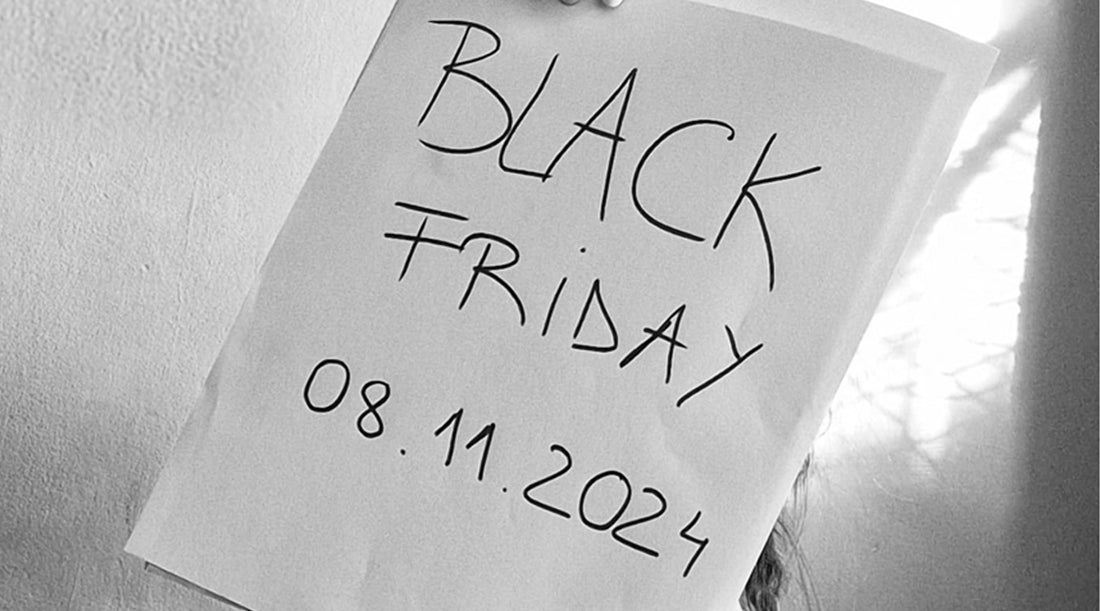 BLACK
FRiDAY
08.11.2024